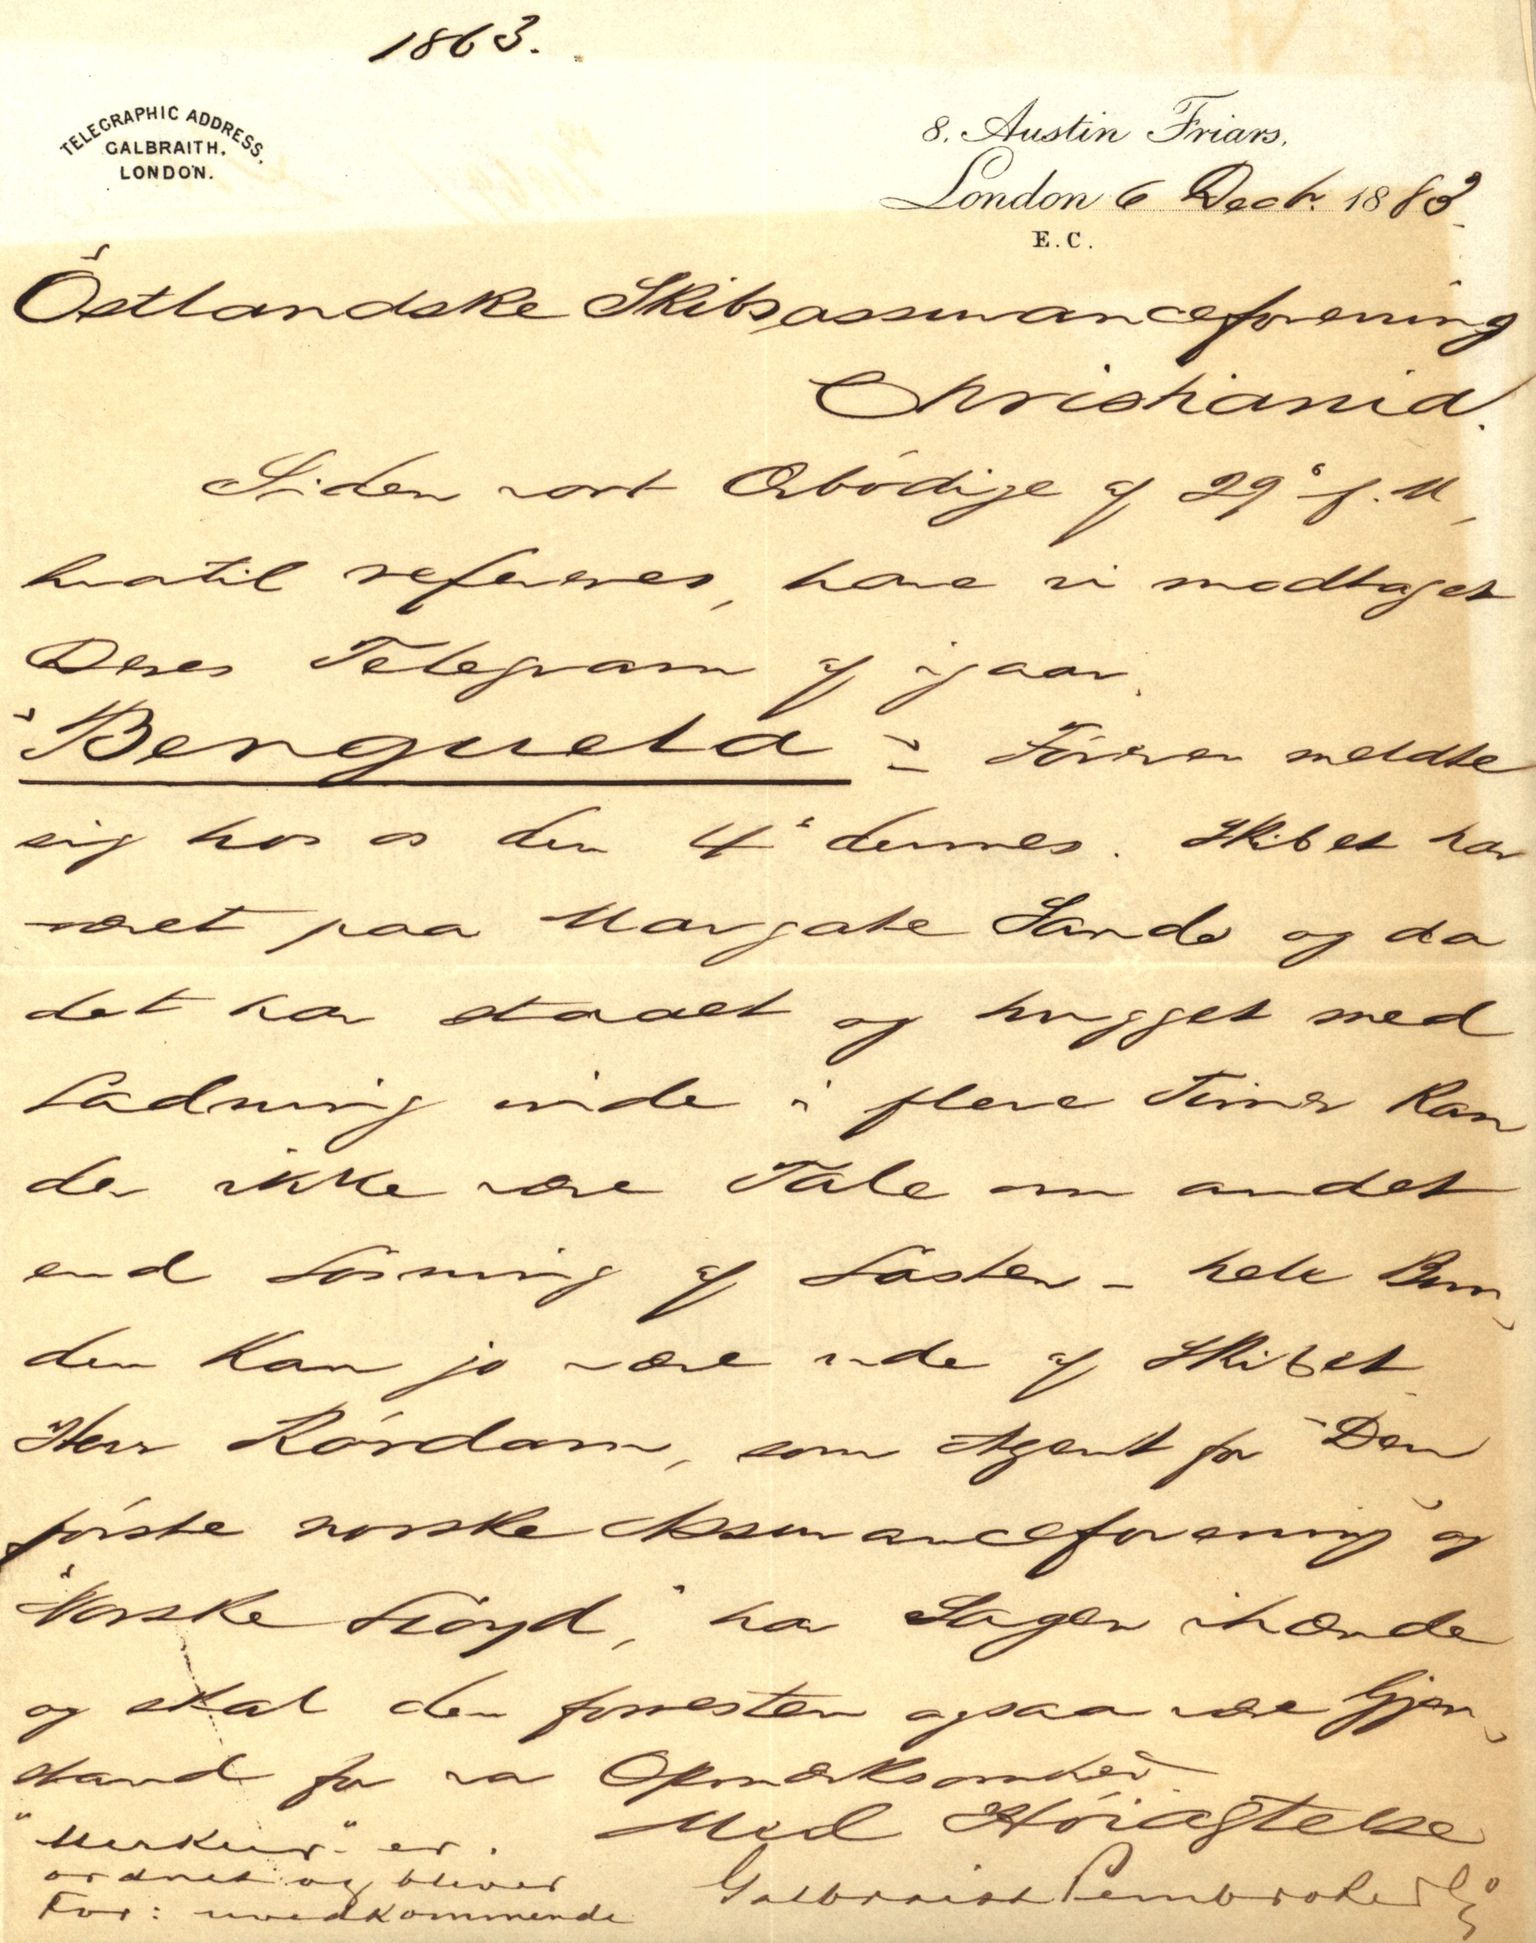 1863.
TELEGRAPHIC ADDRESS,
GALBRAITH,
LONDON.
8, Austin Friars,
London 6 Decbr. 1883.
E.C.
Östlandske Skibsassuranceforening
Christiania.
Siden vort Ærbödige af 29' f. M,
hvortil refereres, have vi modtaget
Deres Telegram af igaar.
"Benguela" = Föreren meldte
sig hos os den 4' dennes. Skibet har
været paa Margate Sands og da
det har staaet og hugget med
Ladning inde i flere Timer kan
der ikke være Tale om andet
end Losning af Lasten - hele Bun-
den kan jo være ude af Skibet.
Herr Rördam, som Agent for "Den
förste norske Assuranceforening" og
"Norske Lloyd," har Sagen ihænde
og skal den forresten ogsaa være Gjen-
stand for vor Opmærksomhed.
Med Höiagtelse
Galbraith Pembroke & Co
"Merkur" er
ordnet og bliver
For: uvedkommende